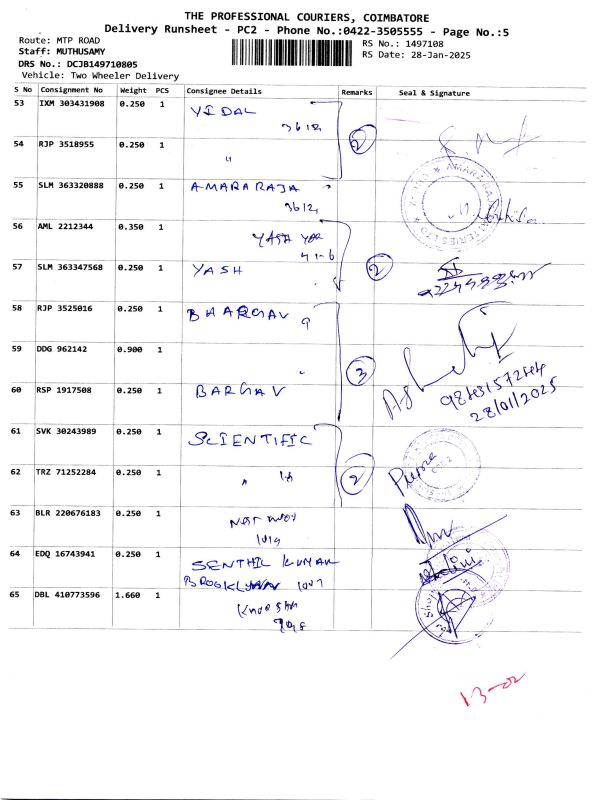 THE PROFESSIONAL COURIERS, COIMBATORE
Delivery Runsheet - PC2 - Phone No.:0422-3505555 - Page No.:5
Route: MTP ROAD
RS No.: 1497108
Staff: MUTHUSAMY
RS Date: 28-Jan-2025
DRS No.: DCJB149710805
Vehicle: Two Wheeler Delivery
S No Consignment No Weight PCS Consignee Details Remarks Seal & Signature
53 IXM 303431908 0.250 1 VIDAL
2
54 RJP 3518955 0.250 1 "
55 SLM 363320888 0.250 1 AMARARAJA
56 AML 2212344 0.350 1 YASH
41-6
57 SLM 363347568 0.250 1 YASH 2
58 RJP 3525016 0.250 1 BHARGAV
59 DDG 962142 0.900 1 3
60 RSP 1917508 0.250 1 BARGAV
28/01/2025
61 SVK 30243989 0.250 1 SCIENTIFIC
62 TRZ 71252284 0.250 1 " 2
63 BLR 220676183 0.250 1
1019
64 EDQ 16743941 0.250 1 SENTHIL KUMAR
BROOKLYNN 1007
65 DBL 410773596 1.660 1
13-02